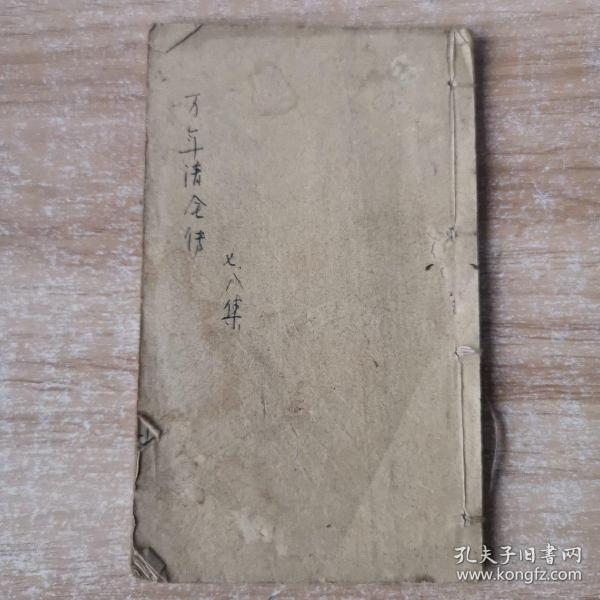 万年清全传
七八集
孔夫子旧書网
www.kongfz.com